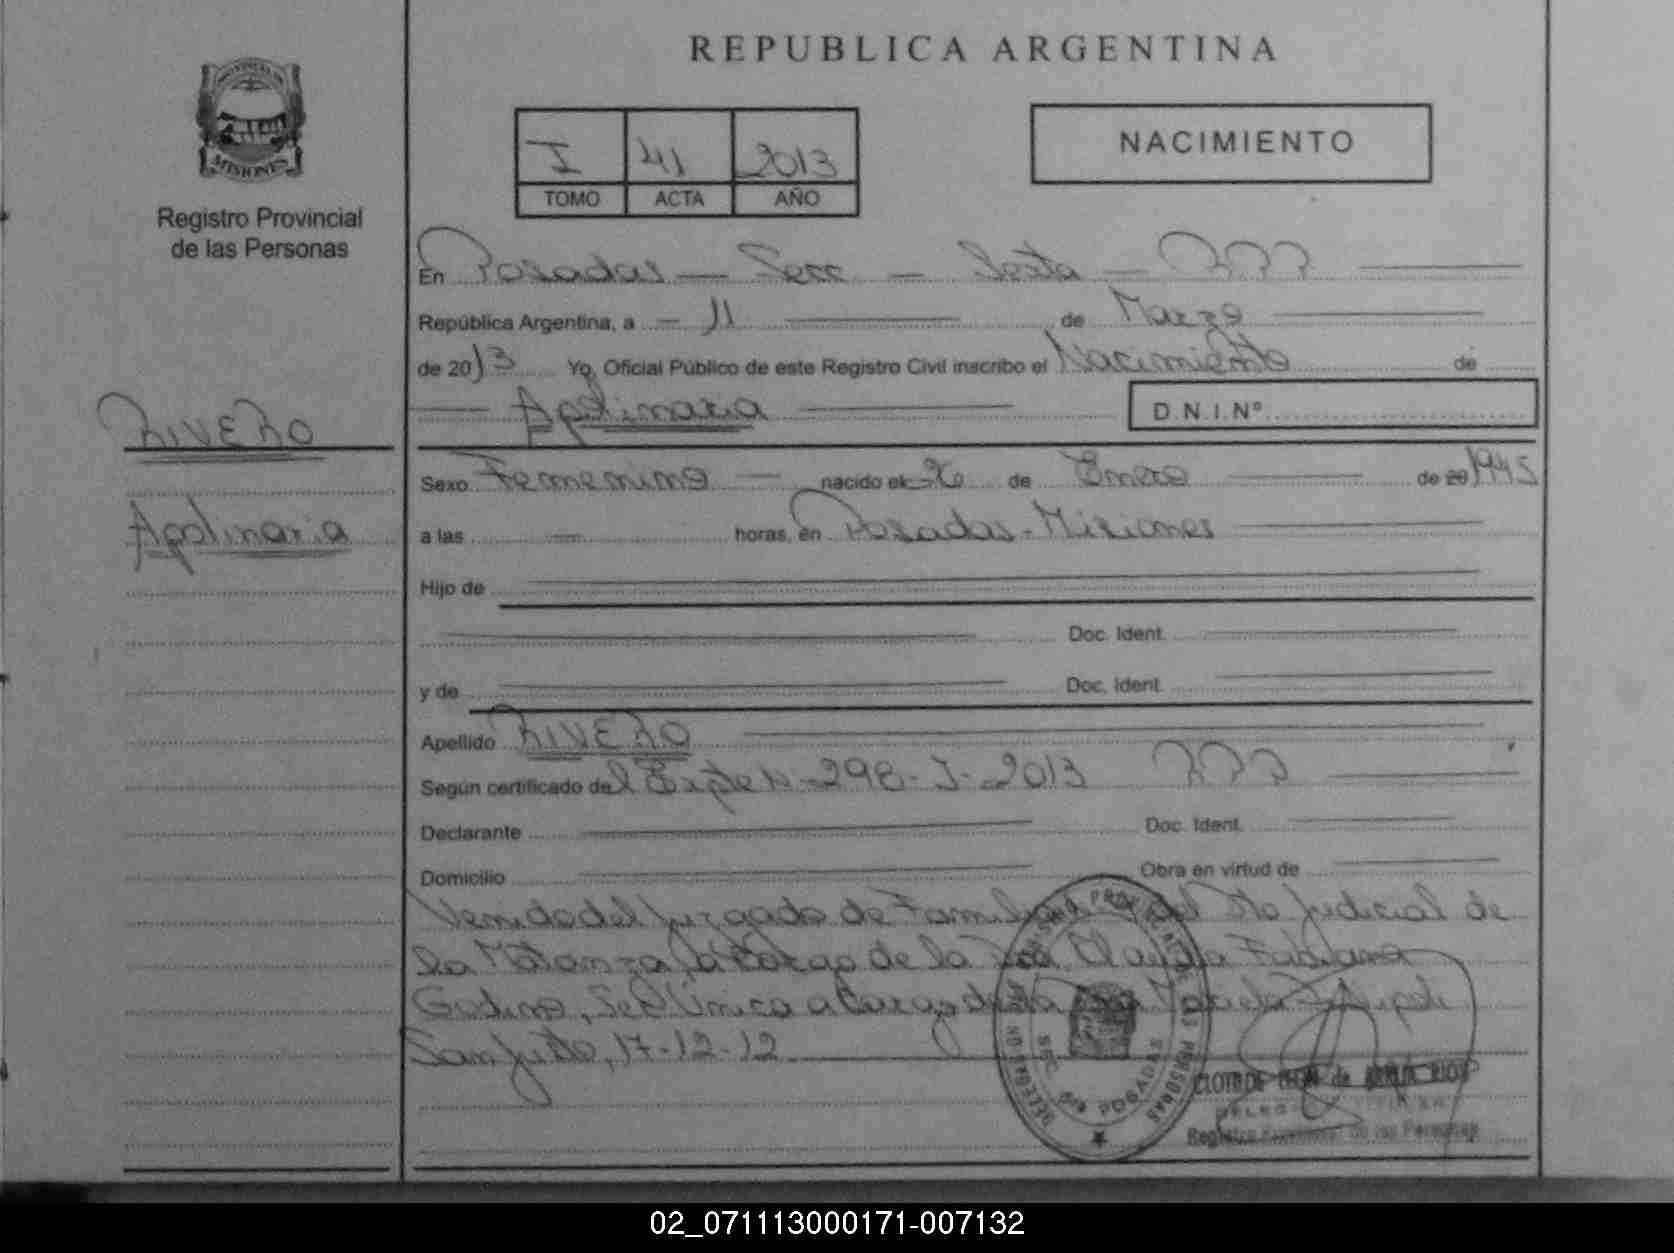 PROVINCIA DE
MISIONES
Registro Provincial
de las Personas
RIVERO
Apolinaria
REPUBLICA ARGENTINA
I 41 2013
TOMO ACTA AÑO
NACIMIENTO
En Posadas - Secc - Sexta -
República Argentina, a - 11 de Marzo
de 2013 Yo, Oficial Público de este Registro Civil inscribo el Nacimiento de
Apolinaria D.N.I.Nº
Sexo Femenino - nacido el 26 de Enero de 20 1945
a las horas, en Posadas - Misiones
Hijo de
Doc. Ident.
y de Doc. Ident.
Apellido RIVERO
Según certificado del Expte Nº 298-I-2013
Declarante Doc. Ident.
Domicilio Obra en virtud de
Venido del Juzgado de Familia del Dto Judicial de
la Matanza a Cargo de la Dra. Claudia Fabiana
Godino, Sec Única a Cargo de la Dra
San Justo, 17-12-12
SEC. 6ta POSADAS
CLOTILDE de
Registro Provincial de las Personas
02_071113000171-007132